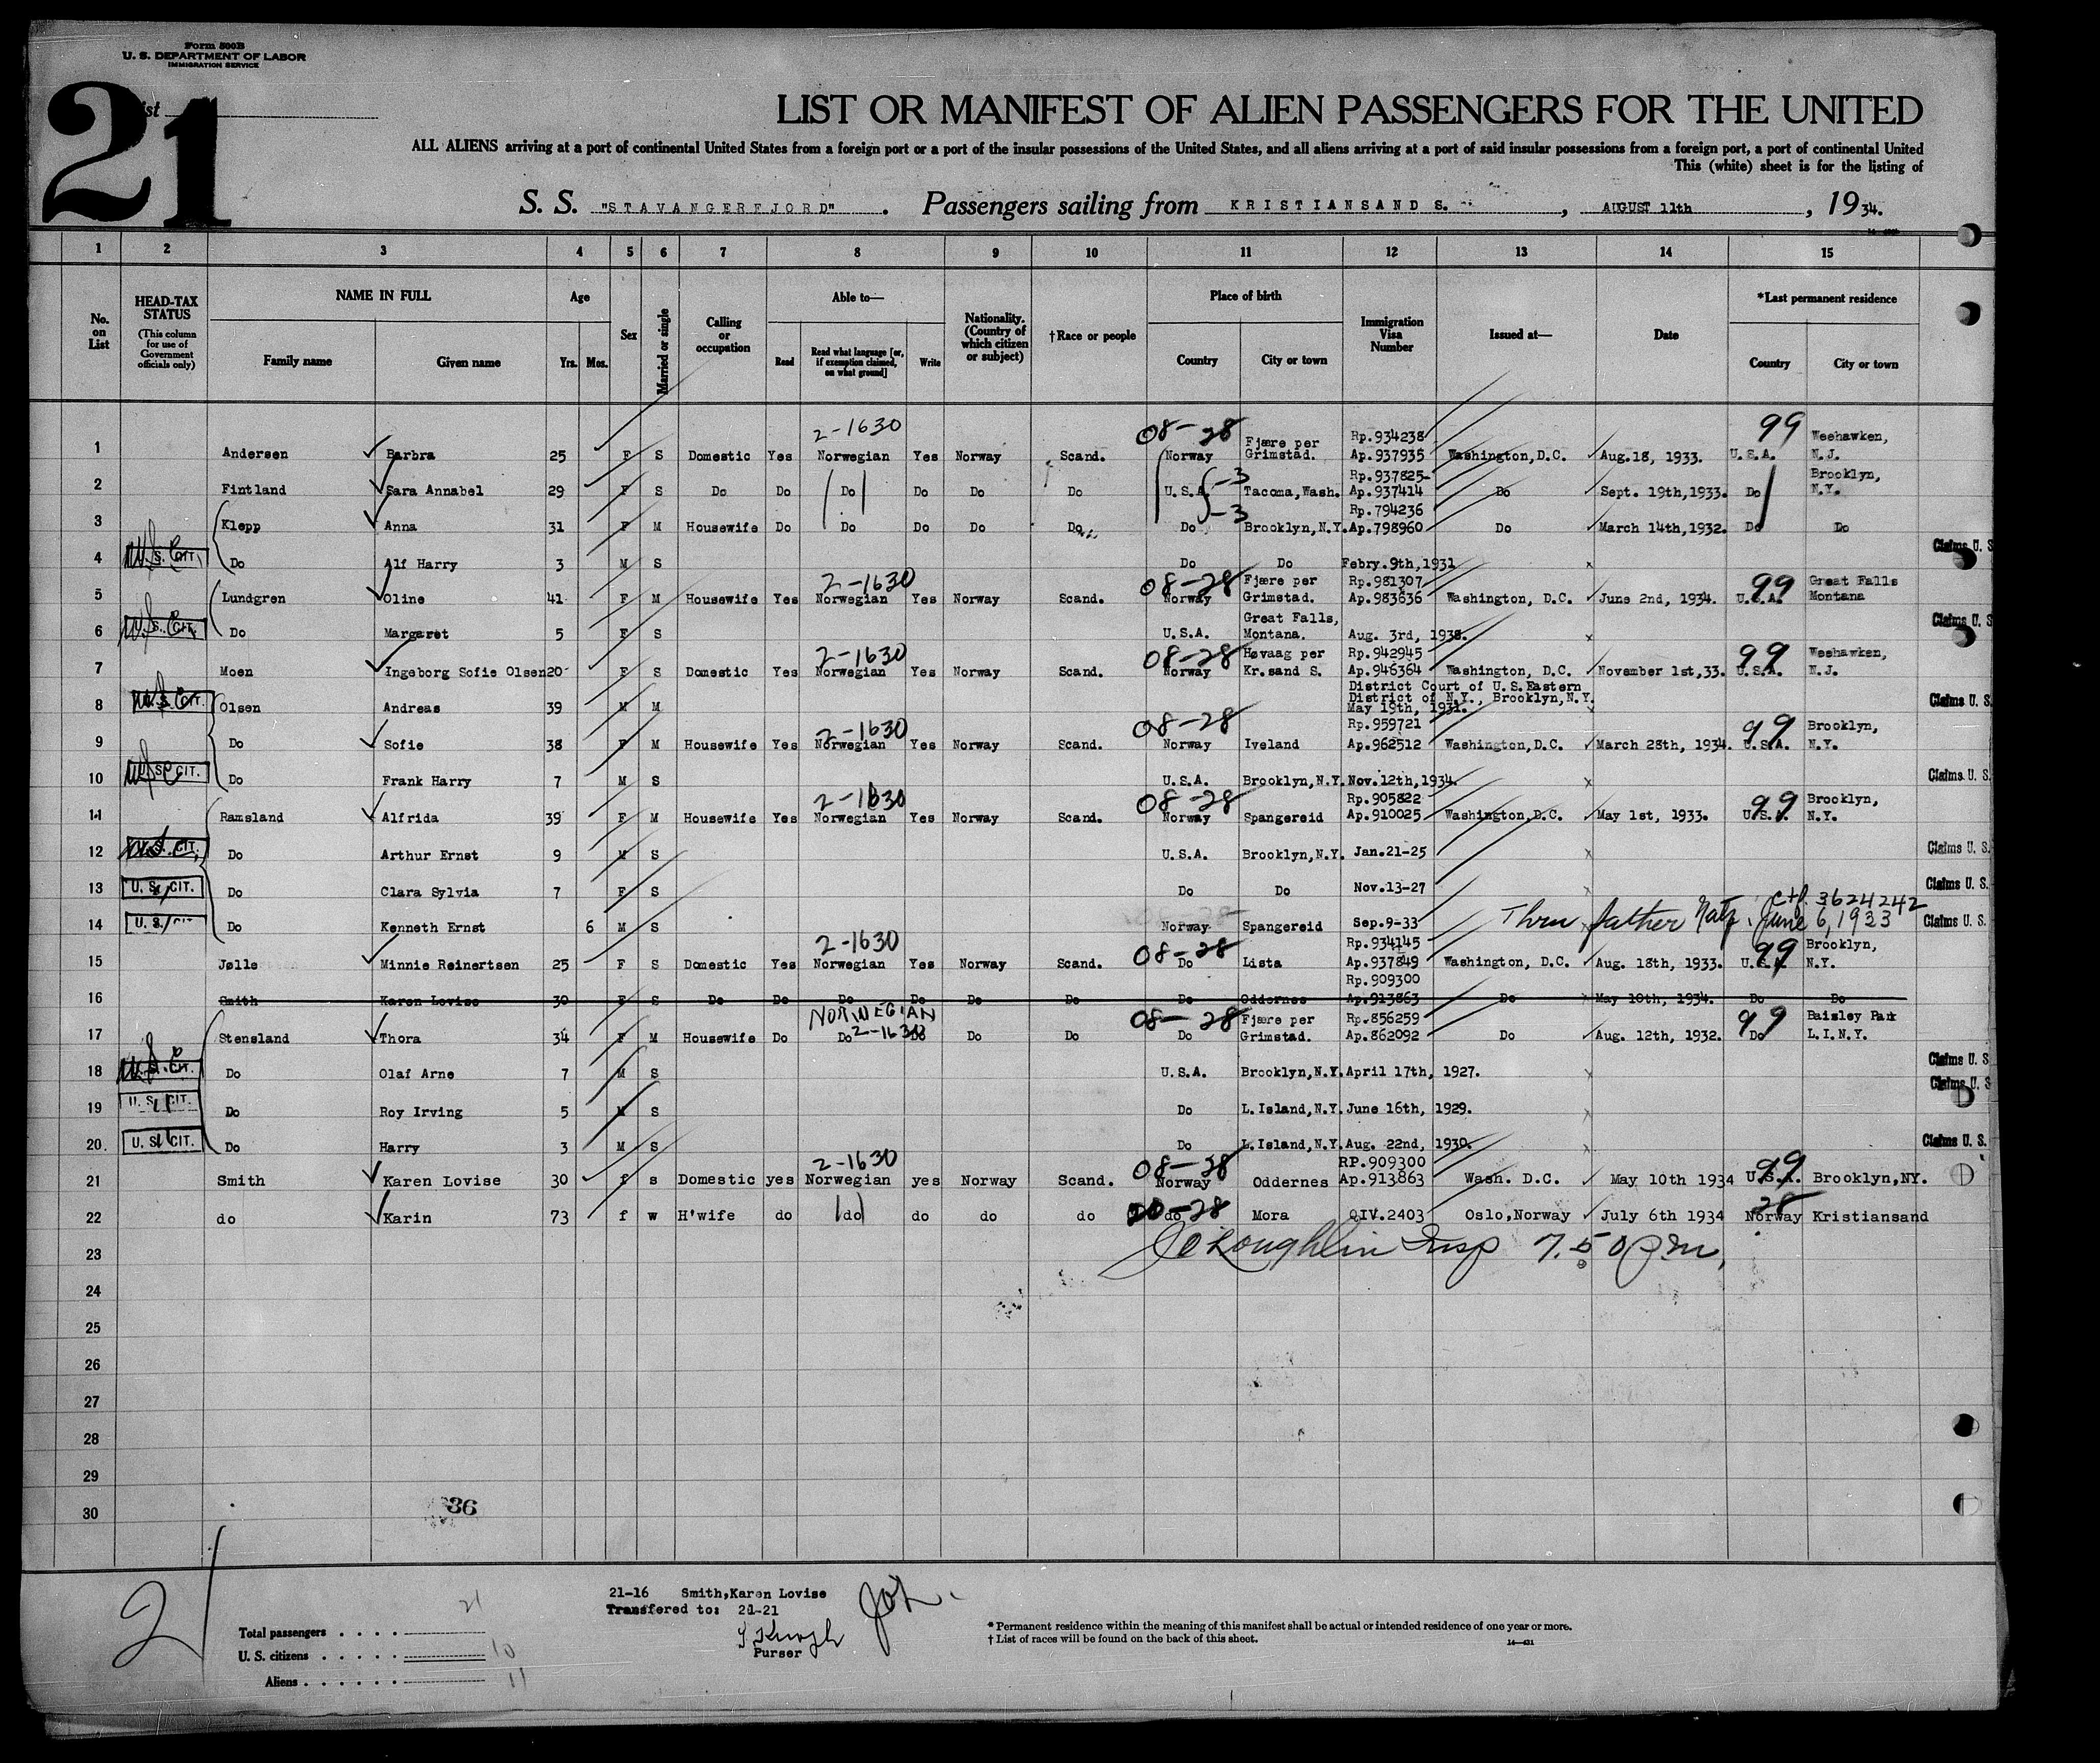 Form 500B
U. S. DEPARTMENT OF LABOR
IMMIGRATION SERVICE
21
LIST OR MANIFEST OF ALIEN PASSENGERS FOR THE UNITED
ALL ALIENS arriving at a port of continental United States from a foreign port or a port of the insular possessions of the United States, and all aliens arriving at a port of said insular possessions from a foreign port, a port of continental United
This (white) sheet is for the listing of
S. S. "STAVANGERFJORD". Passengers sailing from KRISTIANSAND S. , AUGUST 11th , 1934.
1 2 3 4 5 6 7 8 9 10 11 12 13 14 15
No. on List
HEAD-TAX STATUS (This column for use of Government officials only)
NAME IN FULL Family name Given name
Age Yrs. Mos.
Sex
Married or single
Calling or occupation
Able to— Read Read what language [or, if exemption claimed, on what ground] Write
Nationality. (Country of which citizen or subject)
†Race or people
Place of birth Country City or town
Immigration Visa Number
Issued at—
Date
*Last permanent residence Country City or town
2-1630 08-28 99
1 Andersen Barbra 25 F S Domestic Yes Norwegian Yes Norway Scand. Norway Fjære per Grimstad. Rp.934238 Ap.937935 Washington,D.C. Aug.18, 1933. U.S.A. Weehawken, N.J.
2 Fintland Sara Annabel 29 F S Do Do Do Do Do Do U.S.A. -3 Tacoma,Wash. Rp.937825 Ap.937414 Do Sept. 19th,1933. Do Brooklyn, N.Y.
3 Klepp Anna 31 F M Housewife Do Do Do Do Do Do -3 Brooklyn,N.Y. Rp.794236 Ap.798960 Do March 14th,1932. Do Do
4 U.S. CIT. Do Alf Harry 3 M S Do Do Febry.9th,1931 x Claims U. S
2-1630 08-28 99
5 Lundgren Oline 41 F M Housewife Yes Norwegian Yes Norway Scand. Norway Fjære per Grimstad. Rp.981307 Ap.983636 Washington, D.C. June 2nd, 1934. U.S.A. Great Falls Montana
6 U.S. CIT. Do Margaret 5 F S U.S.A. Great Falls, Montana. Aug. 3rd, 1938. x Claims U. S
2-1630 08-28 99
7 Moen Ingeborg Sofie Olsen 20 F S Domestic Yes Norwegian Yes Norway Scand. Norway Høvaag per Kr.sand S. Rp.942945 Ap.946364 Washington, D.C. November 1st,33. U.S.A. Weehawken, N.J.
8 U.S. CIT. Olsen Andreas 39 M M District Court of U.S.Eastern District of N.Y., Brooklyn,N.Y. May 19th, 1931. Claims U. S
2-1630 08-28 99
9 Do Sofie 38 F M Housewife Yes Norwegian Yes Norway Scand. Norway Iveland Rp.959721 Ap.962512 Washington,D.C. March 28th, 1934. U.S.A. Brooklyn, N.Y.
10 U.S. CIT. Do Frank Harry 7 M S U.S.A. Brooklyn,N.Y. Nov.12th,1934. x Claims U. S
2-1630 08-28 99
11 Ramsland Alfrida 39 F M Housewife Yes Norwegian Yes Norway Scand. Norway Spangereid Rp.905822 Ap.910025 Washington,D.C. May 1st, 1933. U.S.A. Brooklyn, N.Y.
12 U.S. CIT. Do Arthur Ernst 9 M S U.S.A. Brooklyn,N.Y. Jan.21-25 x Claims U. S.
13 U.S. CIT. Do Clara Sylvia 7 F S Do Do Nov.13-27 x Claims U. S.
14 U.S. Do Kenneth Ernst 6 M S Norway Spangereid Sep.9-33 Thru father Natz. Ctf. 3624242 June 6, 1933 Claims U. S.
2-1630 08-28 99
15 Jølle Minnie Reinertsen 25 F S Domestic Yes Norwegian Yes Norway Scand. Do Lista Rp.934145 Ap.937849 Washington, D.C. Aug. 18th, 1933. U.S.A. Brooklyn, N.Y.
16 Smith Karen Lovise 30 F S Do Do Do Do Do Do Do Oddernes Rp.909300 Ap.913863 Do May 10th, 1934. Do Do
NORWEGIAN 2-1630 08-28 99
17 Stensland Thora 34 F M Housewife Do Do Do Do Do Do Fjære per Grimstad. Rp.856259 Ap.862092 Do Aug. 12th, 1932. Do Baisley Park L.I.N.Y.
18 U.S. CIT. Do Olaf Arne 7 M S U.S.A. Brooklyn,N.Y. April 17th, 1927. x Claims U. S
19 U.S. CIT. Do Roy Irving 5 M S Do L.Island,N.Y. June 16th, 1929. x Claims U. S
20. U.S. CIT. Do Harry 3 M S Do L.Island,N.Y. Aug. 22nd, 1930. x Claims U. S.
2-1630 08-28 99
21 Smith Karen Lovise 30 f s Domestic yes Norwegian yes Norway Scand. Norway Oddernes RP.909300 Ap.913863 Wash. D.C. May 10th 1934 U.S.A. Brooklyn,NY.
22 do Karin 73 f w H'wife do do do do do do 20-28 Mora QIV.2403 Oslo,Norway July 6th 1934 28 Norway Kristiansand
23 J O'Loughlin Insp 7.50 pm,
24
25
26
27
28
29
30
36
21
21-16 Smith,Karen Lovise
Transfered to: 21-21
Purser
Total passengers . . . . 21
U. S. citizens . . . . . 10
Aliens . . . . . . 11
* Permanent residence within the meaning of this manifest shall be actual or intended residence of one year or more.
† List of races will be found on the back of this sheet.